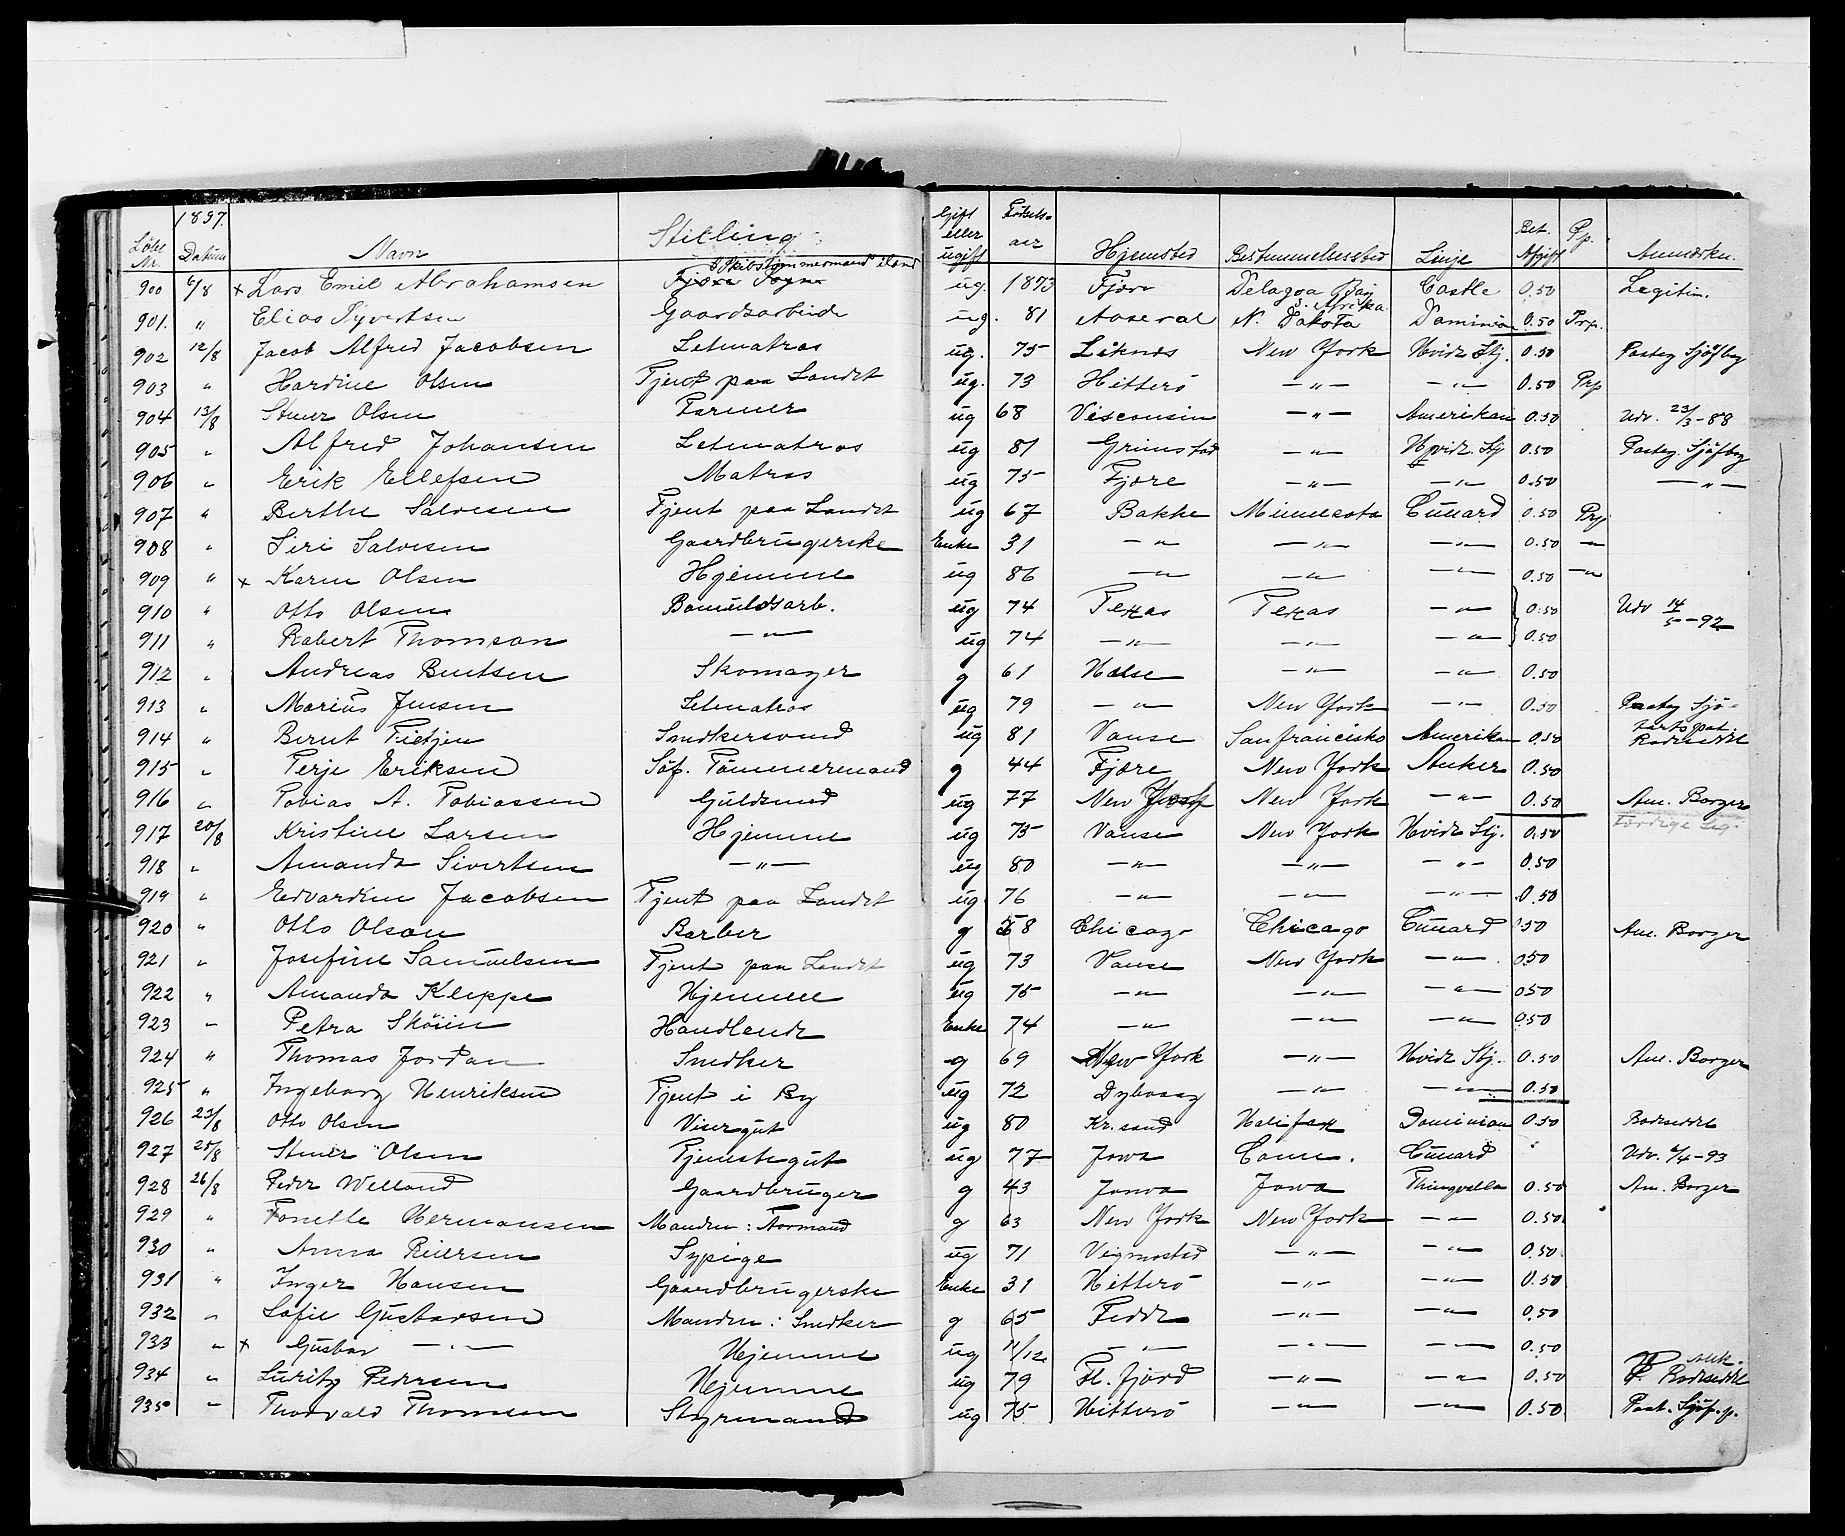 1897.
Løbe Nr. Datum Navn Stilling Gift eller ugift Fødsels aar Hjemsted Bestemmelsessted Linje Bet. Afgift Pp. Anmærkn.
900 6/8 x Lars Emil Abrahamsen Skibstømmermand ug. 1873 Fjære Delagoa Bay S. Afrika Castle 0.50 Legitim.
901. " Elias Syvertsen Gaardsarbeide ug. 81 Aaseral N. Dakota Dominion 0.50 Prp.
902 12/8 Jacob Alfred Jacobsen Letmatros ug. 75 Liknes New York Hvide Stj. 0.50 Pasteg Sjøfbg
903 " Hardine Olsen Tjent paa Landet ug. 73 Hitterö —"— —"— 0.50 Prp
904 13/8 Stener Olsen Farmer ug 68 Visconsin —"— Amerikan 0.50 Udv. 23/3-88
905 " Alfred Johansen Letmatros ug 81 Grimstad —"— Hvide Stj 0.50 Pasteg. Sjöfbg
906 " Erik Ellefsen Matros ug 75 Fjære —"— —"— 0.50 —"—
907 " Berthe Salvesen Tjent paa Landet ug 67 Bakke Minnesota Cunard 0.50 Prp
908 " Siri Salvesen Gaardbrugerske Enke 31 —"— —"— —"— 0.50 —"
909 " x Karen Olsen Hjemme ug 86 —"— —"— —"— 0.50 —"
910 " Otto Olsen Bomuldsarb. ug 74 Texas Texas —"— 0.50 Udv 14/5-92
911 " Robert Thomson —"— ug 74 —"— —"— —"— 0.50
912 " Andreas Bentsen Skomager g 61 Halse —"— —"— 0.50
913 " Marius Jensen Letmatros ug 79 —"— New York —"— 0.50 Pasteg Sjö-
914 " Bernt Tietjen Snedkersvend ug 81 Vanse Sanfrancisko Amerikan 0.50 fartspat. Rodseddel
915 " Terje Eriksen Söf. Tömmermand g 44 Fjære New York Anker 0.50
916 " Tobias A. Tobiassen Guldsmed ug 77 New York New York —"— 0.50 Am. Borger
917 20/8 Kristine Larsen Hjemme ug 75 Vanse New York Hvide Stj. 0.50
918 " Amanda Sivertsen —"— ug 80 —"— —"— —"— 0.50
919 " Edvardine Jacobsen Tjent paa Landet ug 76 —"— —"— —"— 0.50
920 " Otto Olson Barber g 58 Chicago Chicago Cunard 0.50 Am. Borger
921 " Josefine Samuelsen Tjent paa Landet ug 73 Vanse New York —"— 0.50
922 " Amanda Kleppe Hjemme ug 75 —"— —"— —"— 0.50
923 " Petra Sköien Handlende Enke 74 —"— —"— —"— 0.50
924 " Thomas Jordan Snedker g 69 New York —"— Hvide Stj. 0.50 Am. Borger
925 " Ingeborg Henriksen Tjent i By ug 72 Dybvaag —"— —"— 0.50
926 23/8 Otto Olsen Visergut ug 80 Kr.sand Halifax Dominion 0.50 Rodseddel
927 25/8 Stener Olsen Tjenestegut ug 77 Iowa Conn. Cunard " Udv. 6/4-93
928 26/8 Peder Welland Gaardbruger g 43 Jowa Jowa Thingvalla 0.50 Am. Borger
929 " Tonette Hermansen Manden: Formand g 63 New York New York —"— 0.50
930 " Anna Reiersen Sypige ug 71 Vigmostad —"— —"— 0.50
931 " Inger Hansen Gaardbrugerske Enke 31 Hitterö —"— —"— 0.50
932 " Sofie Gustavsen Manden: Snedker g 65 Fedde —"— —"— 0.50
933 " x Gustav —"— Hjemme ug 11/12 —"— —"— —"— 0.50
934 " Lurits Pedersen Hjemme ug 79 Fl. fjord —"— —"— 0.50 Rodseddel
935 " Thorvald Thomsen Styrmand ug 75 Hitterö —"— —"— 0.50 Past. Sjöf.p.